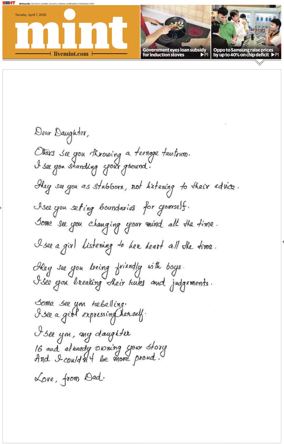 mint
livemint.com
Government eyes loan subsidy
for induction stoves
Oppo to Samsung raise prices
by up to 40% on chip deficit
Dear Daughter,
Others see you throwing a teenage tantrum.
I see you standing your ground.
They see you as stubborn, not listening to their advice.
I see you setting boundaries for yourself.
Some see you changing your mind all the time.
I see a girl listening to her heart all the time.
They see you being friendly with boys.
I see you breaking their rules and judgements.
Some see you rebelling.
I see a girl expressing herself.
I see you, my daughter
16 and already owning your story
And I couldn't be more proud.
Love, from Dad.